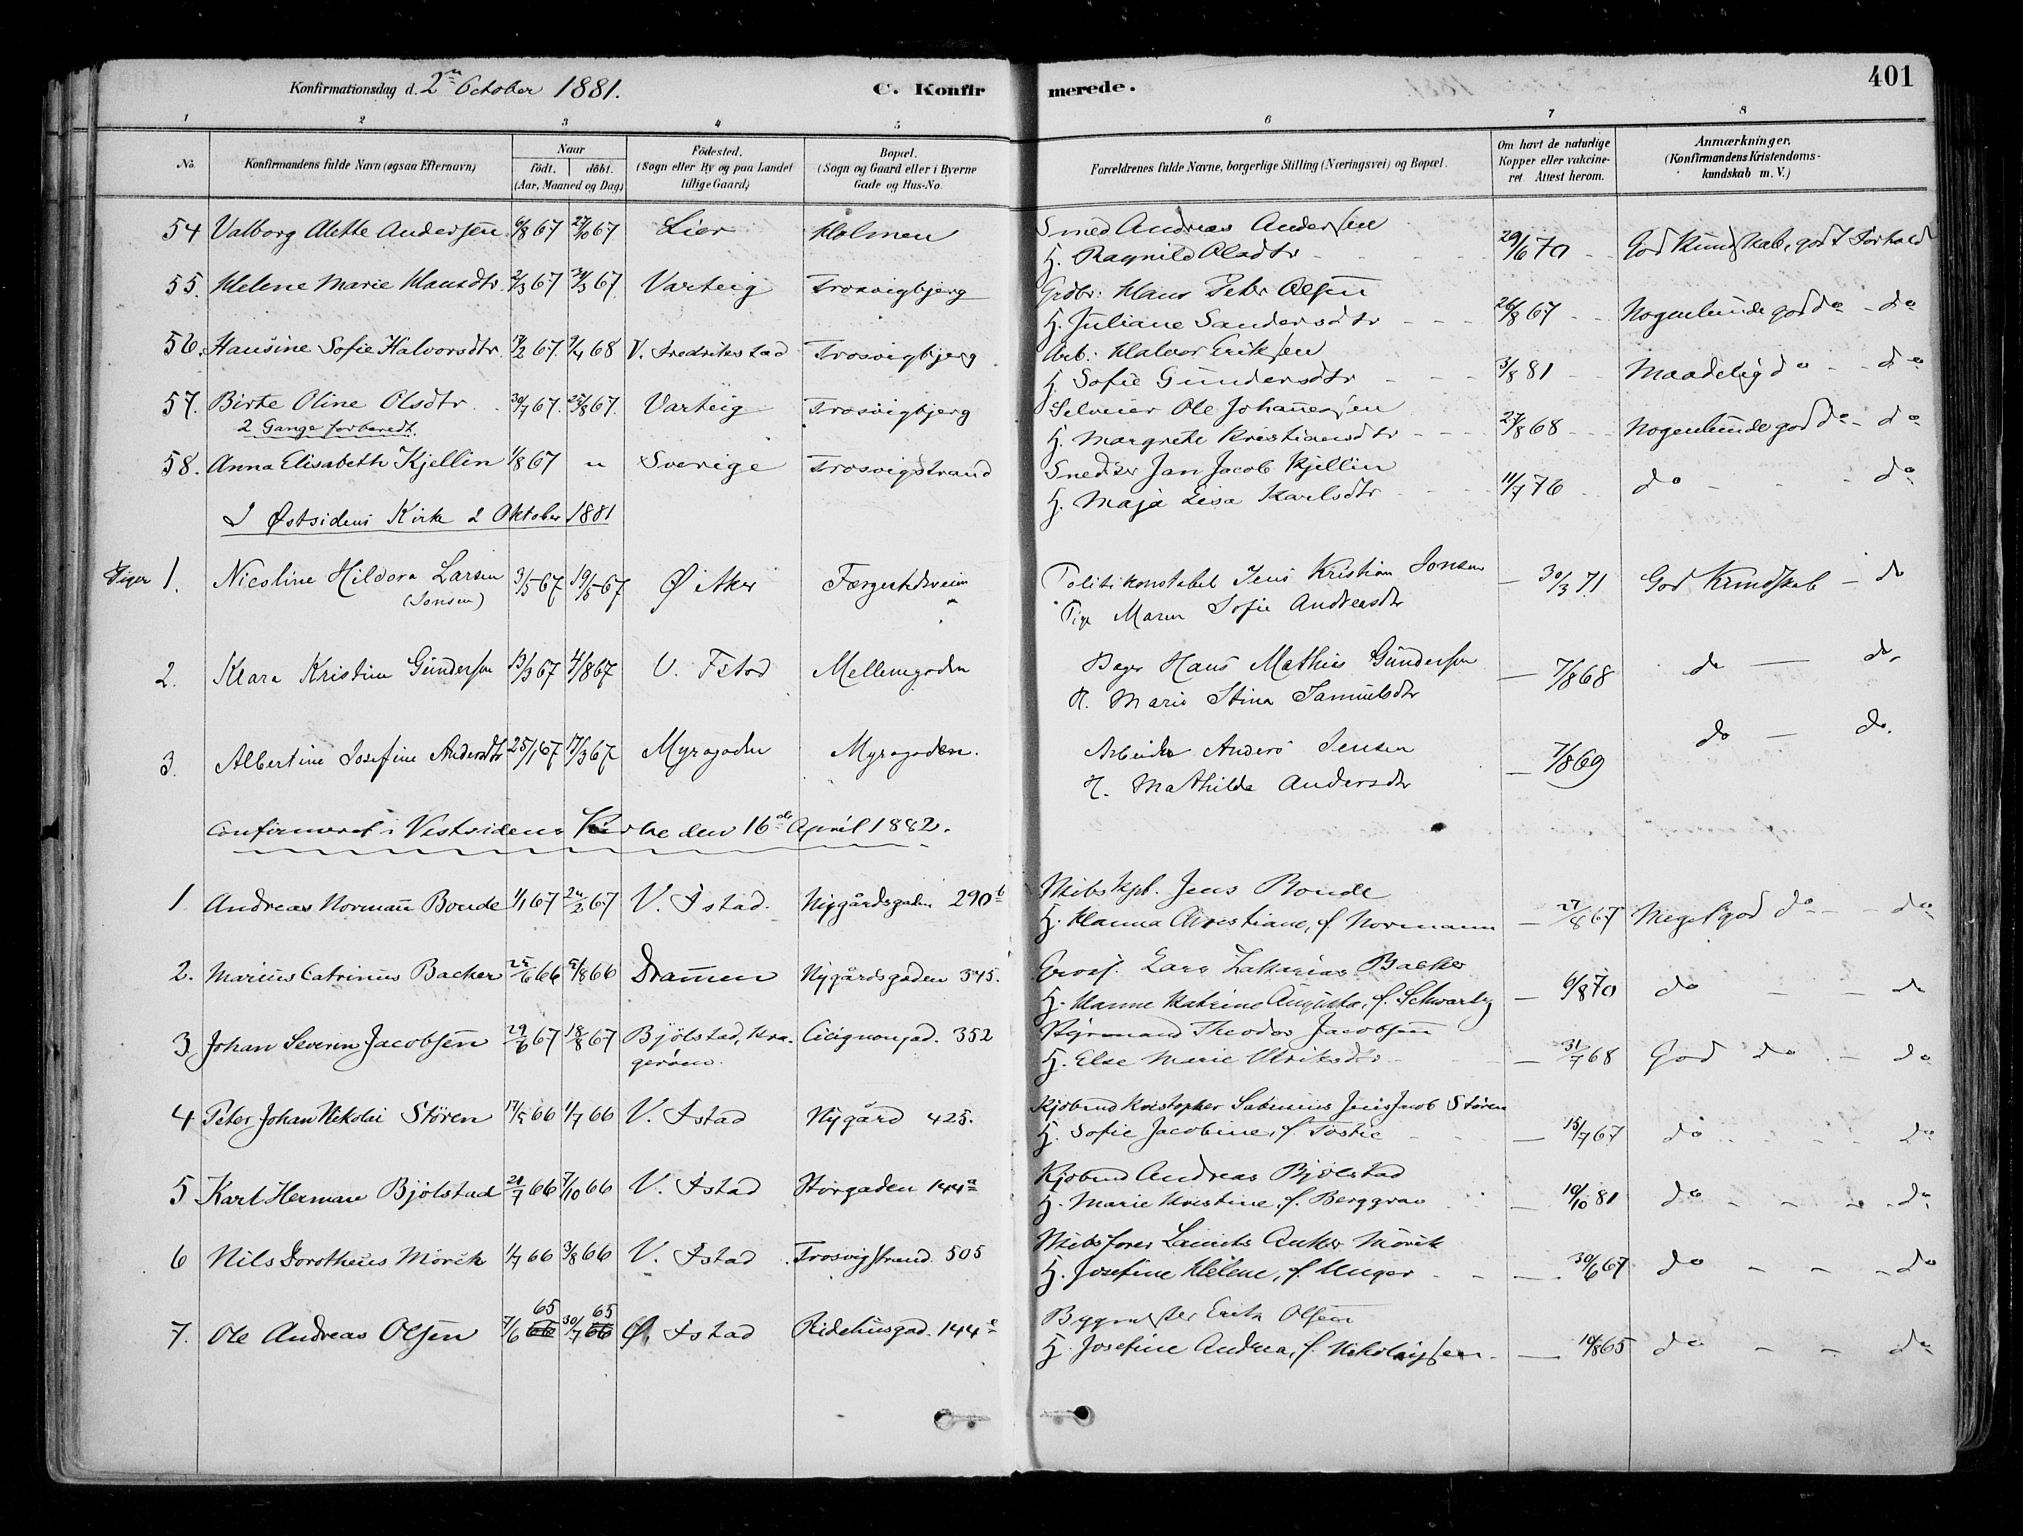 Konfirmationsdag d. 2den October 1881. C. Konfirmerede. 401
1 2 3 4 5 6 7 8
No. Konfirmandens fulde Navn (ogsaa Efternavn) Naar født. døbt. (Aar, Maaned og Dag) Fødested. (Sogn eller By og paa Landet tillige Gaard) Bopæl. (Sogn og Gaard eller i Byerne Gade og Hus-No. Forældrenes fulde Navne, borgerlige Stilling (Næringsvei) og Bopæl. Om havt de naturlige Kopper eller vakcineret Attest herom. Anmærkninger. (Konfirmandens Kristendomskundskab m. V.)
54 Valborg Alette Andersen 6/8 67 27/10 67 Lier Holmen Smed Andreas Andersen
H. Ragnild Olsdtr 29/6 70 God Kundskab, godt Forhold
55. Helene Marie Hansdtr 2/3 67 31/3 67 Varteig Trosvigbjerg Grdbr: Hans Peter Olsen
H. Juliane Sandersdtr 26/8 67 Nogenlunde god do - do
56. Hansine Sofie Halvorsdtr 17/2 67 7/4 68 V. Fredrikstad Trosvigbjerg Arb: Halvor Eriksen
H. Sofie Gundersdtr 3/8 81 Maadelig do - do
57. Birte Oline Olsdtr 30/7 67 25/8 67 Varteig Trosvigbjerg Selveier Ole Johannesen
2 Gange forberedt.
H. Margrete Kristiansdtr 27/8 68 Nogenlunde god do - do
58. Anna Elisabeth Kjellin 1/8 67 " Sverige Trosvigstrand Snedker Jan Jacob Kjellin
H. Maja Lisa Karlsdtr 11/7 76 do - do
I Østsidens Kirke 2 Oktober 1881
Piger 1. Nicoline Hildora Larsen 3/5 67 19/5 67 Ø Aker Færgestedsveien Politikonstabel Jens Kristian Jonsen
(Jonsen) Pige Maren Sofie Andreasdtr 30/3 71 God Kundskab - do
2. Klara Kristine Gundersen 13/3 67 4/8 67 V. Fstad Mellemgaden Bager Hans Mathias Gundersen
H. Marie Stina Samuelsdtr 7/8 68 do - do.
3. Albertine Josefine Andersdtr 25/1 67 17/3 67 Myragaden Myragaden. Arbeider Anders Jensen
H. Mathilde Andersdtr 7/8 69 do - do.
Confirmeret i Vestsidens Kirke den 16de April 1882.
1 Andreas Normann Bonde 1/1 67 24/2 67 V. Fstad. Nygårdsgaden 290b Skibskpt. Jens Bonde
H. Hanna Christiane, f. Normann 27/8 67 Meget god do - do
2. Marius Catrinus Backer 25/6 66 5/8 66 Dramen Nygårdsgaden 345. Gross. Lars Zakarias Backer
H. Hanne Katrine Augusta, f. Schwartz 6/8 70 do - do
3. Johan Severin Jacobsen 29/6 67 18/8 67 Bjölstad, Kragerøen. Cicignongad. 352 Styrmand Theodor Jacobsen
H. Else Marie Olriksdtr 31/7 68 God do - do
4 Peter Johan Nikolai Støren 17/5 66 1/7 66 V. Fstad Nygård 425. Kjøbmd Kristopher Jens Jacob Støren
H. Sofie Jacobine, f. 15/7 67 do - do
5 Karl Herman Bjölstad 21/7 66 7/10 66 V. Fstad Storgaden 144a Kjøbmd Andreas Bjölstad
H. Marie Kristine, f. Berggrav 10/10 81 do - do
6 Nils Dorotheus Mörck 1/7 66 3/8 66 V. Fstad Trosvigstrand 505 Skibsfører Laurits Anker Mörck
H. Josefine Helene, f. Unger 30/6 67 do - do
7. Ole Andreas Olsen 7/6 65 30/7 65 Ø. Fstad Ridehusgad. 144 Byggmester Erik Olsen
H. Josefine Andrea, f. Nikolaysen 10/8 65 do - do